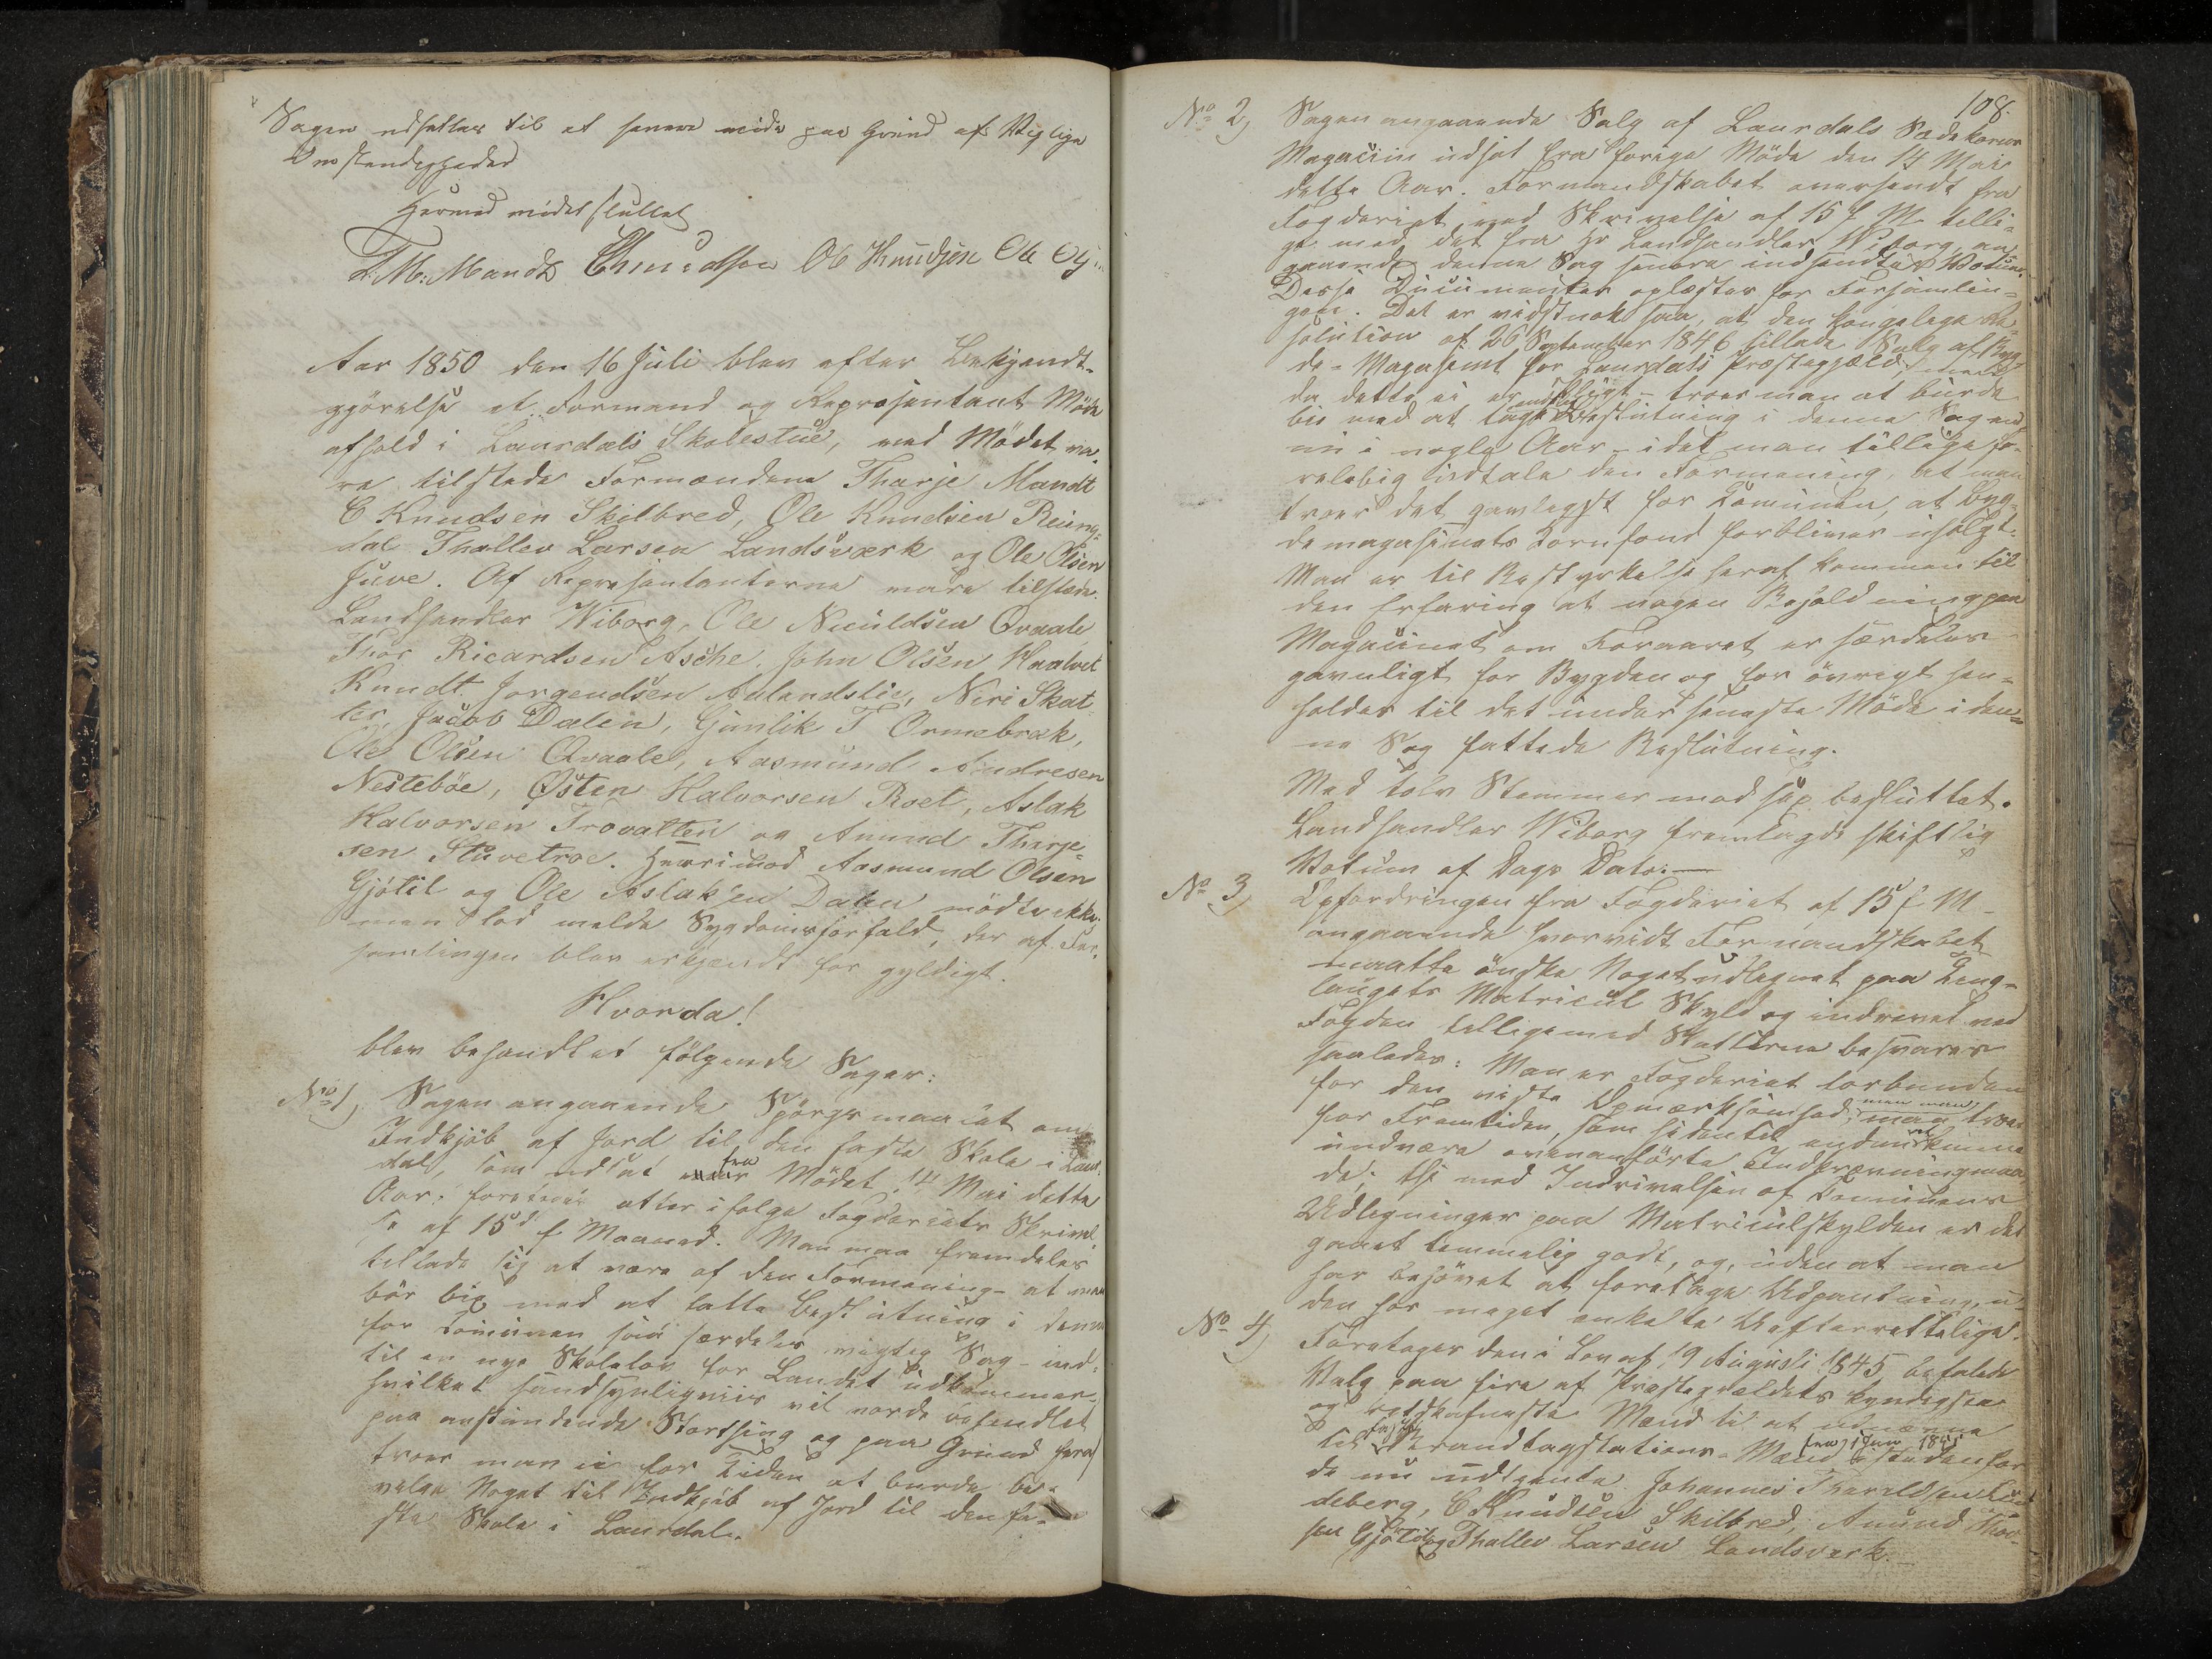 Sagen udsattes til et senere möde paa Grund af Vigtige
Omstendigheder
Hermed mödet sluttet
T. M. Mandt CKnudsen Ole Knudsen Ole
Aar 1850 den 16 Juli blev efter Bekjendt-
gjörelse et Formand og Repræsentant Möde
afhold i Laurdals Skolestue, ved Mödet va-
re tilstede Formændene Tharje Mandt
C Knudsen Skilbred, Ole Knudsen Reing-
dal Thallev Larsen Landsværk og Ole Olsen
Juve. Af Repræsentanterne vare tilstede:
Landhandler Wiborg, Ole Niculdsen Qvaale
Thor Ricardsen Asche, John Olsen Haatvet
Knudt Jorgendsen Aalandslie, Niri Skat-
ter, Jacob Dalen, Gunlik T Ormebræk,
Ole Olsen Qvaale, Aasmund Andresen
Nesteböe, Østen Halvorsen Roet, Aslak
Halvorsen Trovatten og Anund Tharje-
sen Stuvetroe. Hvorimod Aasmund Olsen
Gjötil og Ole Aslaksen Dalen mödte ikke,
men lod melde Sygdomsforfald, der af For-
samlingen blev erkjendt for gyldigt.
Hvorda!
blev behandlet fölgende Sager:
No 1, Sagen angaaende Spörgsmaalet om
Indkjöb af Jord til den faste Skole i Laur-
dal, som udsat fra Mödet 14 Mai dette
Aar, foretoges atter ifolge Fogderiets Skrivel-
se af 15d f Maaned. Man maa fremdeles
tillade sig at være af den Formening - at man
bör bie med at fatte Beslutning i denne
for Comunen saa særdeles vigtig Sag - ind-
til en nye Skolelov for Landet udkommer,
hvilket sandsynligviis vil vorde behandlet
paa anstundende Storthing og paa Grund heraf
troer man ei for Tiden at burde be-
vilge Noget til Indkjöb af Jord til den fa-
ste Skole i Laurdal.
108.
No 2, Sagen angaaende Salg af Laurdals Sædekorns
Magaciin udsat fra forige Möde den 14 Mai
dette Aar. Formandskabet oversendt fra
Fogderiet ved Skrivelse af 15 f. M. tilli-
ge med det fra Hr Landhandler Wiborg an-
gaaende denne Sag senere indsendte Votum.
Disse Ducumenter oplæstes for Forsamlin-
gen. Det er vidstnok saa, at den kongelige Re-
solution af 26 September 1846 tillade Salg af Byg-
de-Magasinet for Laurdals Præstegjæld
da dette ei er - troer man at burde
bie med at tage Beslutning i denne Sag end
nu i nogle Aar - idet man tillige fo-
relobig udtale den Formening, at man
troer det gavlegst for Comunen, at Byg-
demagasinets Kornfond forbliver usolgt.
Man er til Bestyrkelse heraf kommen til
den Erfaring at nogen Beholdning paa
Magacinet om Foraaret er særdeles
gavnligt for Bygden og for övrigt hen-
holdes til det under seneste Möde i den-
ne Sag fattede Beslutning.
Med tolv Stemmer mod sex besluttet.
Landhandler Wiborg fremlagde skiftlig
Votum af Dags Dato. —
No 3, Opfordringen fra Fogderiet af 15 f M -
angaaende hvorvidt Formandskabet
maatte önske Noget udlignet paa Ting-
laugets Matricul Skyld og indrevet ved
Fogden tilligemed Skatterne besvares
saaledes: Man er Fogderiet forbunden
for den viste Opmærksomhed, men man troer
for Fremtiden, som hidentil endnu vel kunne
undvære ovenanförte Indkrævningsmaa-
de, thi med Indrivelsen af Comunens
Udlegninger paa Matriculskylden er det
gaaet temmelig godt, og, uden at man
har behövet at foretage Udpantning, u-
den hos meget enkelte Uefterrettelige.
No 4, Foretages den i Lov af 19 Augusti 1845 befalede
Valg paa fire af Præstegjældets kyndigste
og retskafneste Mænd til at udnævne
til Brandtagstations-Mænd istedenfor
de nu udtrente Johannes Tharaldsen Lun-
deberg, C Knudsen Skilbred, Anund Thor-
sen Gjötil og Thallev Larsen Landsverk.